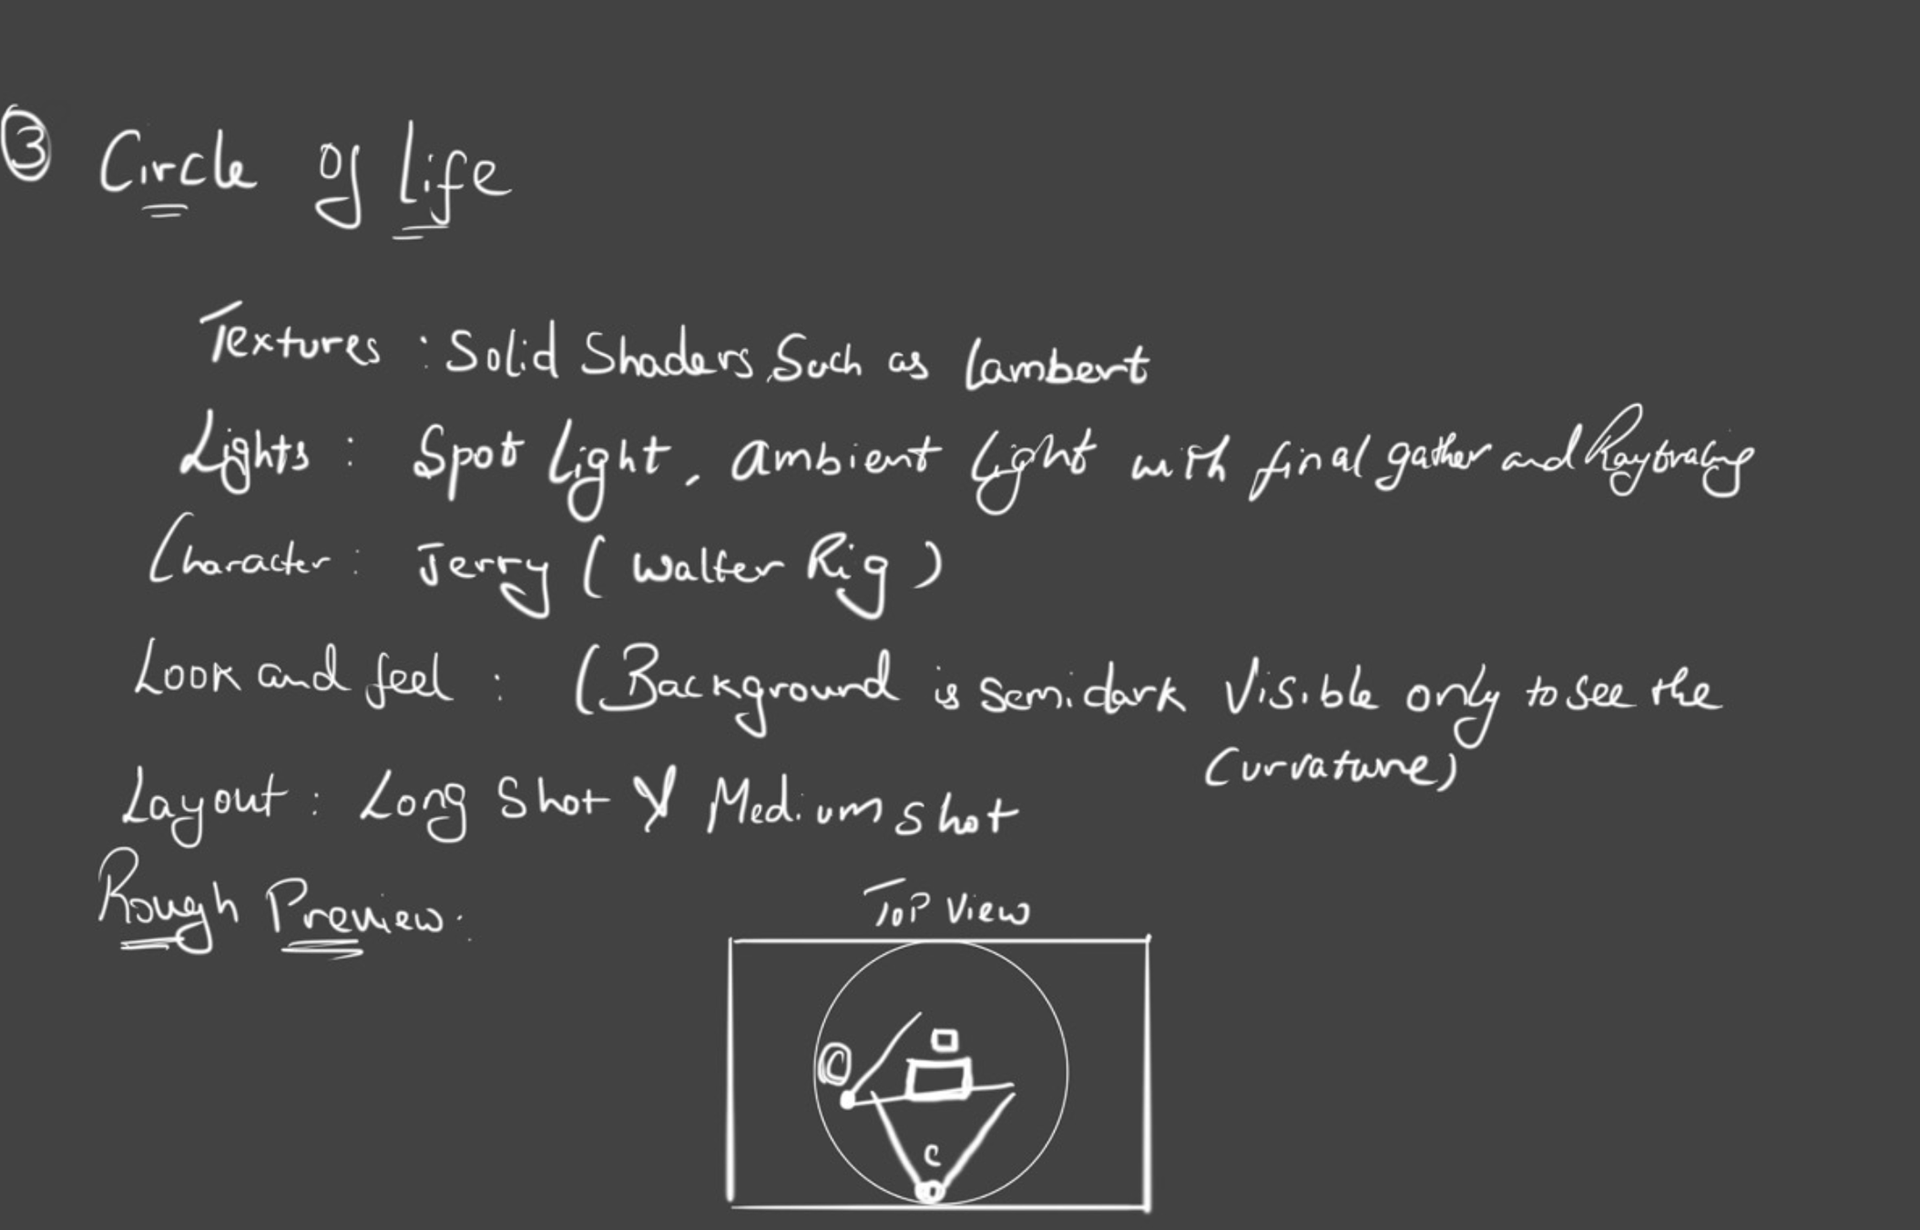 ③ Circle of Life
Textures : Solid Shaders, Such as Lambert
Lights : Spot Light, Ambient Light with final gather and Raytracing
Character : Jerry ( Walter Rig )
Look and feel : (Background is semi dark Visible only to see the
Curvature)
Layout : Long Shot & Medium shot
Rough Preview :
Top View
C
C